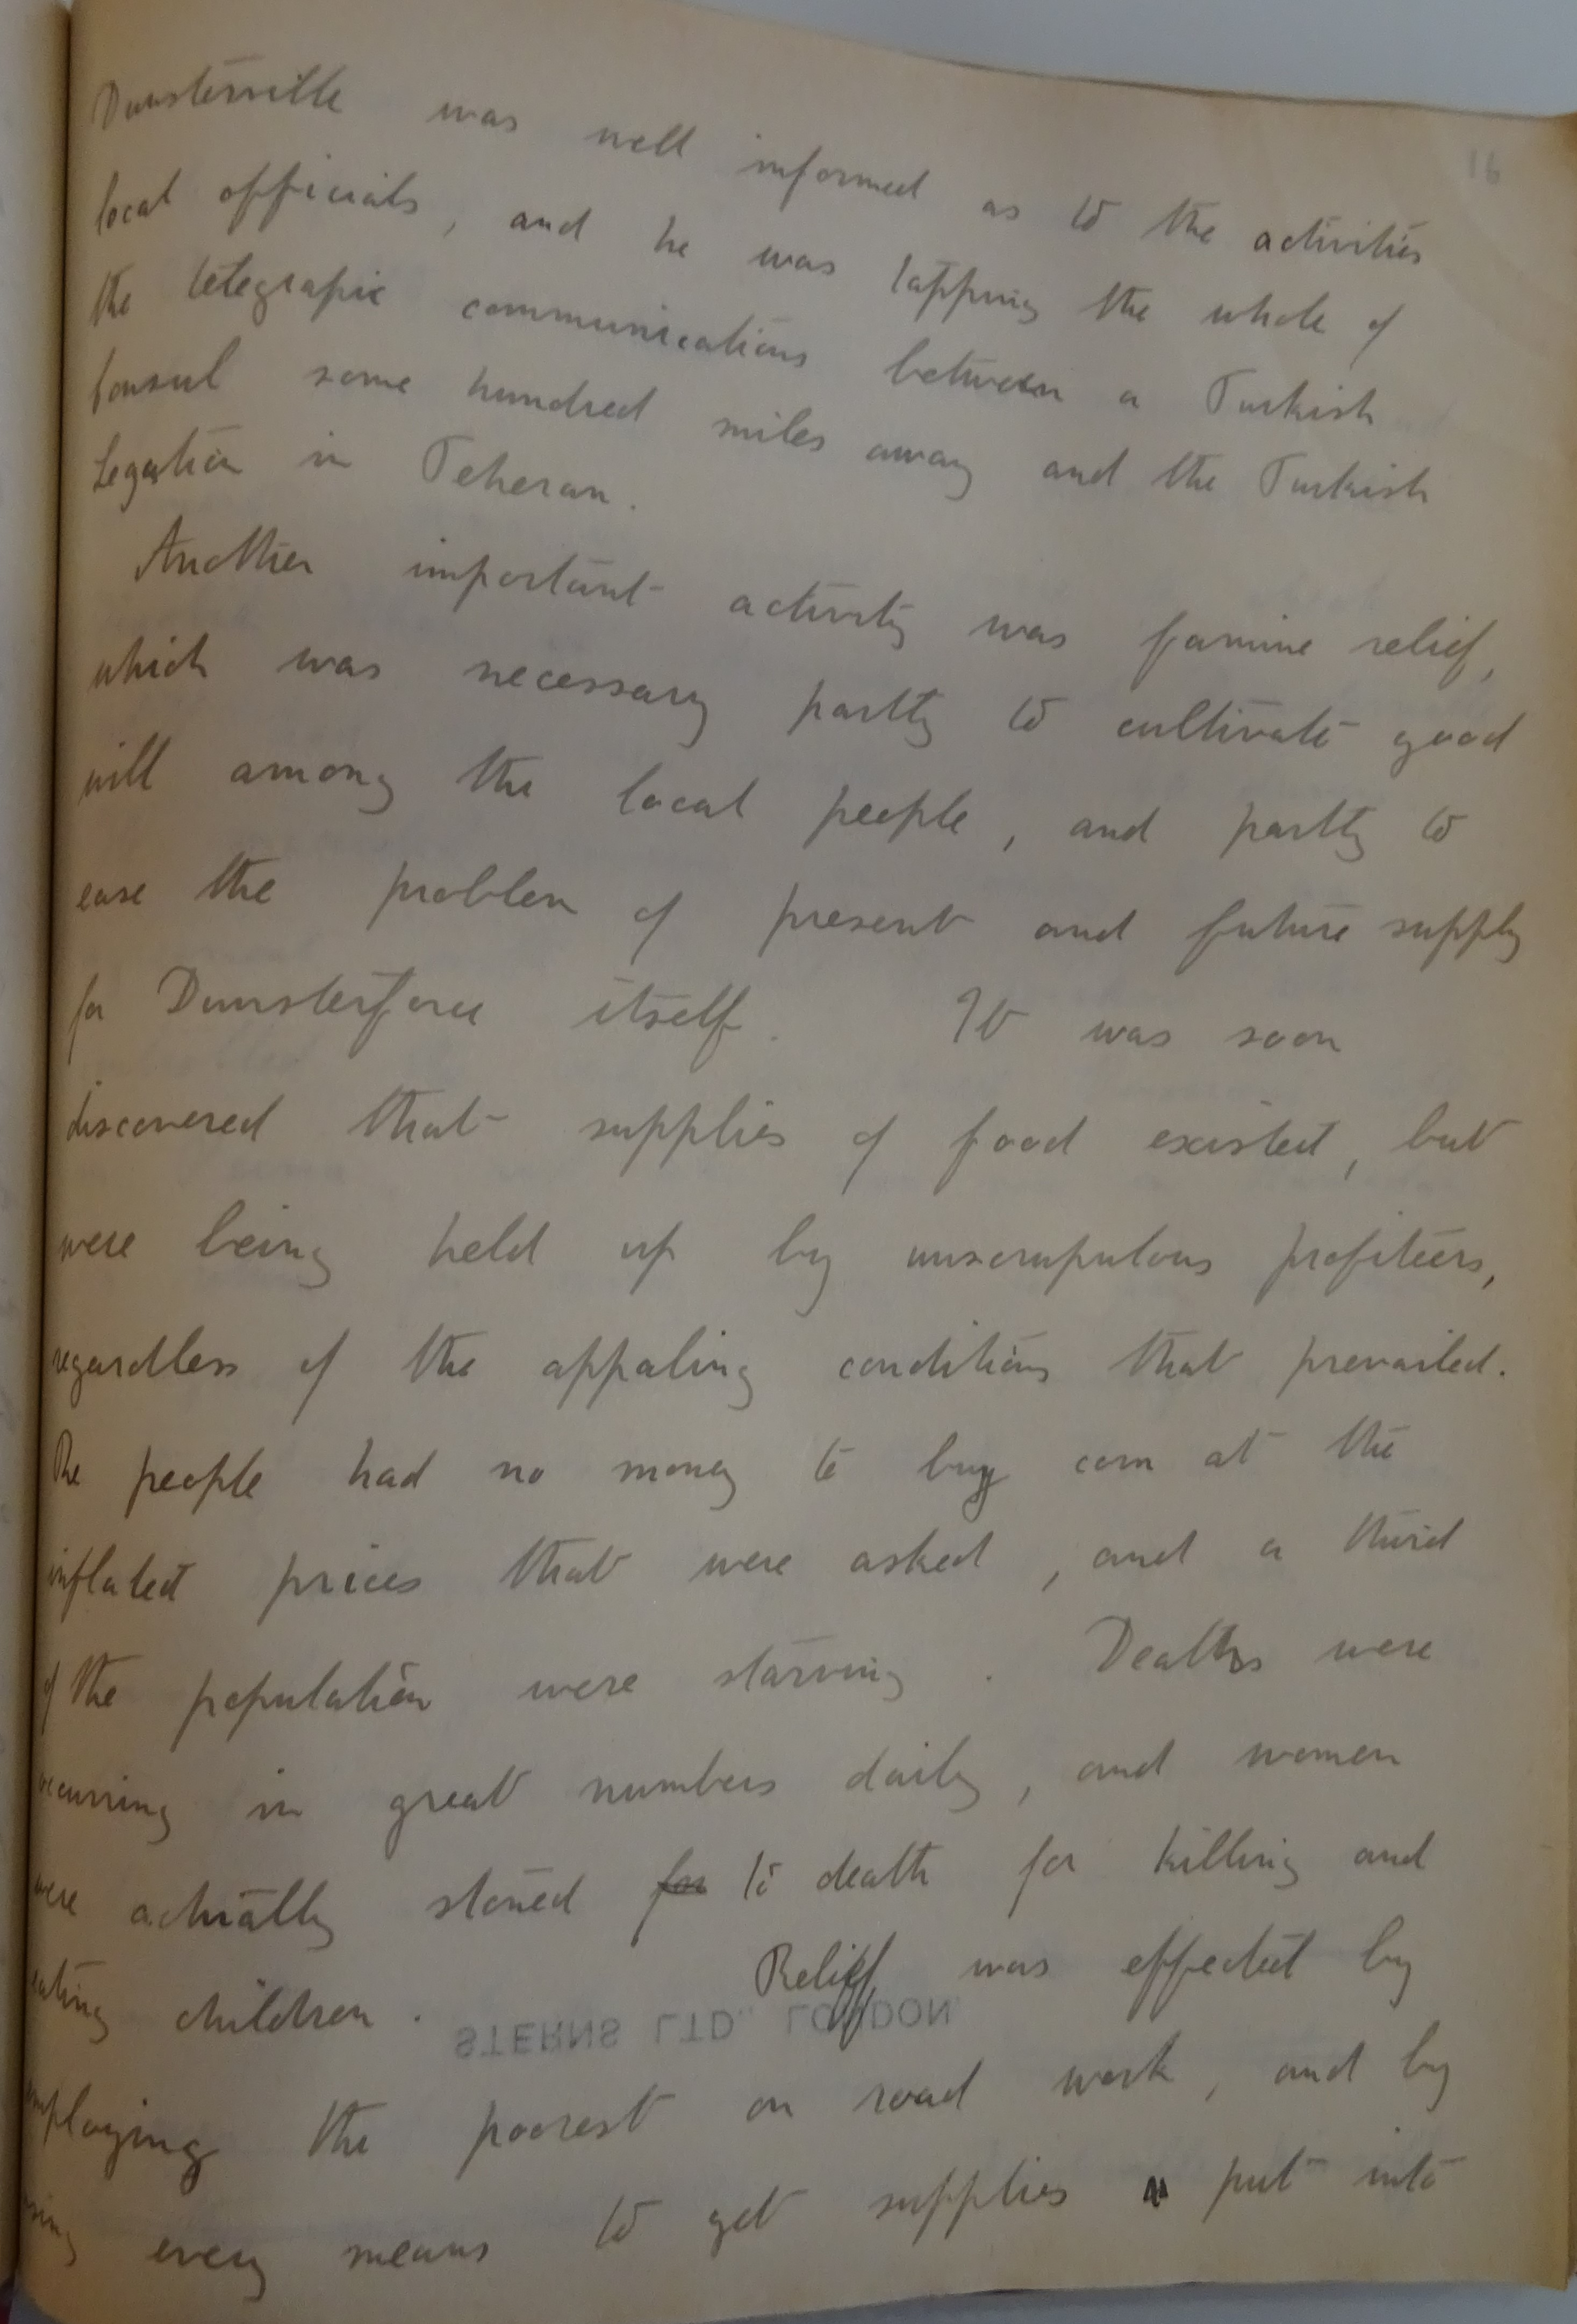 16
Dunsterville was well informed as to the activities
local officials, and he was tapping the whole of
the telegrapic communications between a Turkish
Consul some hundred miles away and the Turkish
Legation in Teheran.
Another important activity was famine relief,
which was necessary partly to cultivate good
will among the local people, and partly to
ease the problem of present and future supply
for Dunsterforce itself. It was soon
discovered that supplies of food existed, but
were being held up by unscrupulous profiteers,
regardless of the appaling conditions that prevailed.
The people had no money to buy corn at the
inflated prices that were asked, and a third
of the population were starving. Deaths were
occurring in great numbers daily, and women
were actually stoned for to death for killing and
eating children. Relief was effected by
STERNS LTD., LONDON
employing the poorest on road work, and by
using every means to get supplies put into